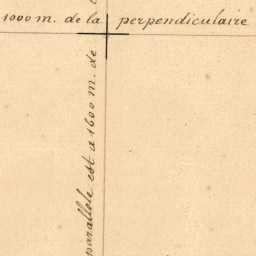 1000 m. de la perpendiculaire
parallele est a 1600 m. de